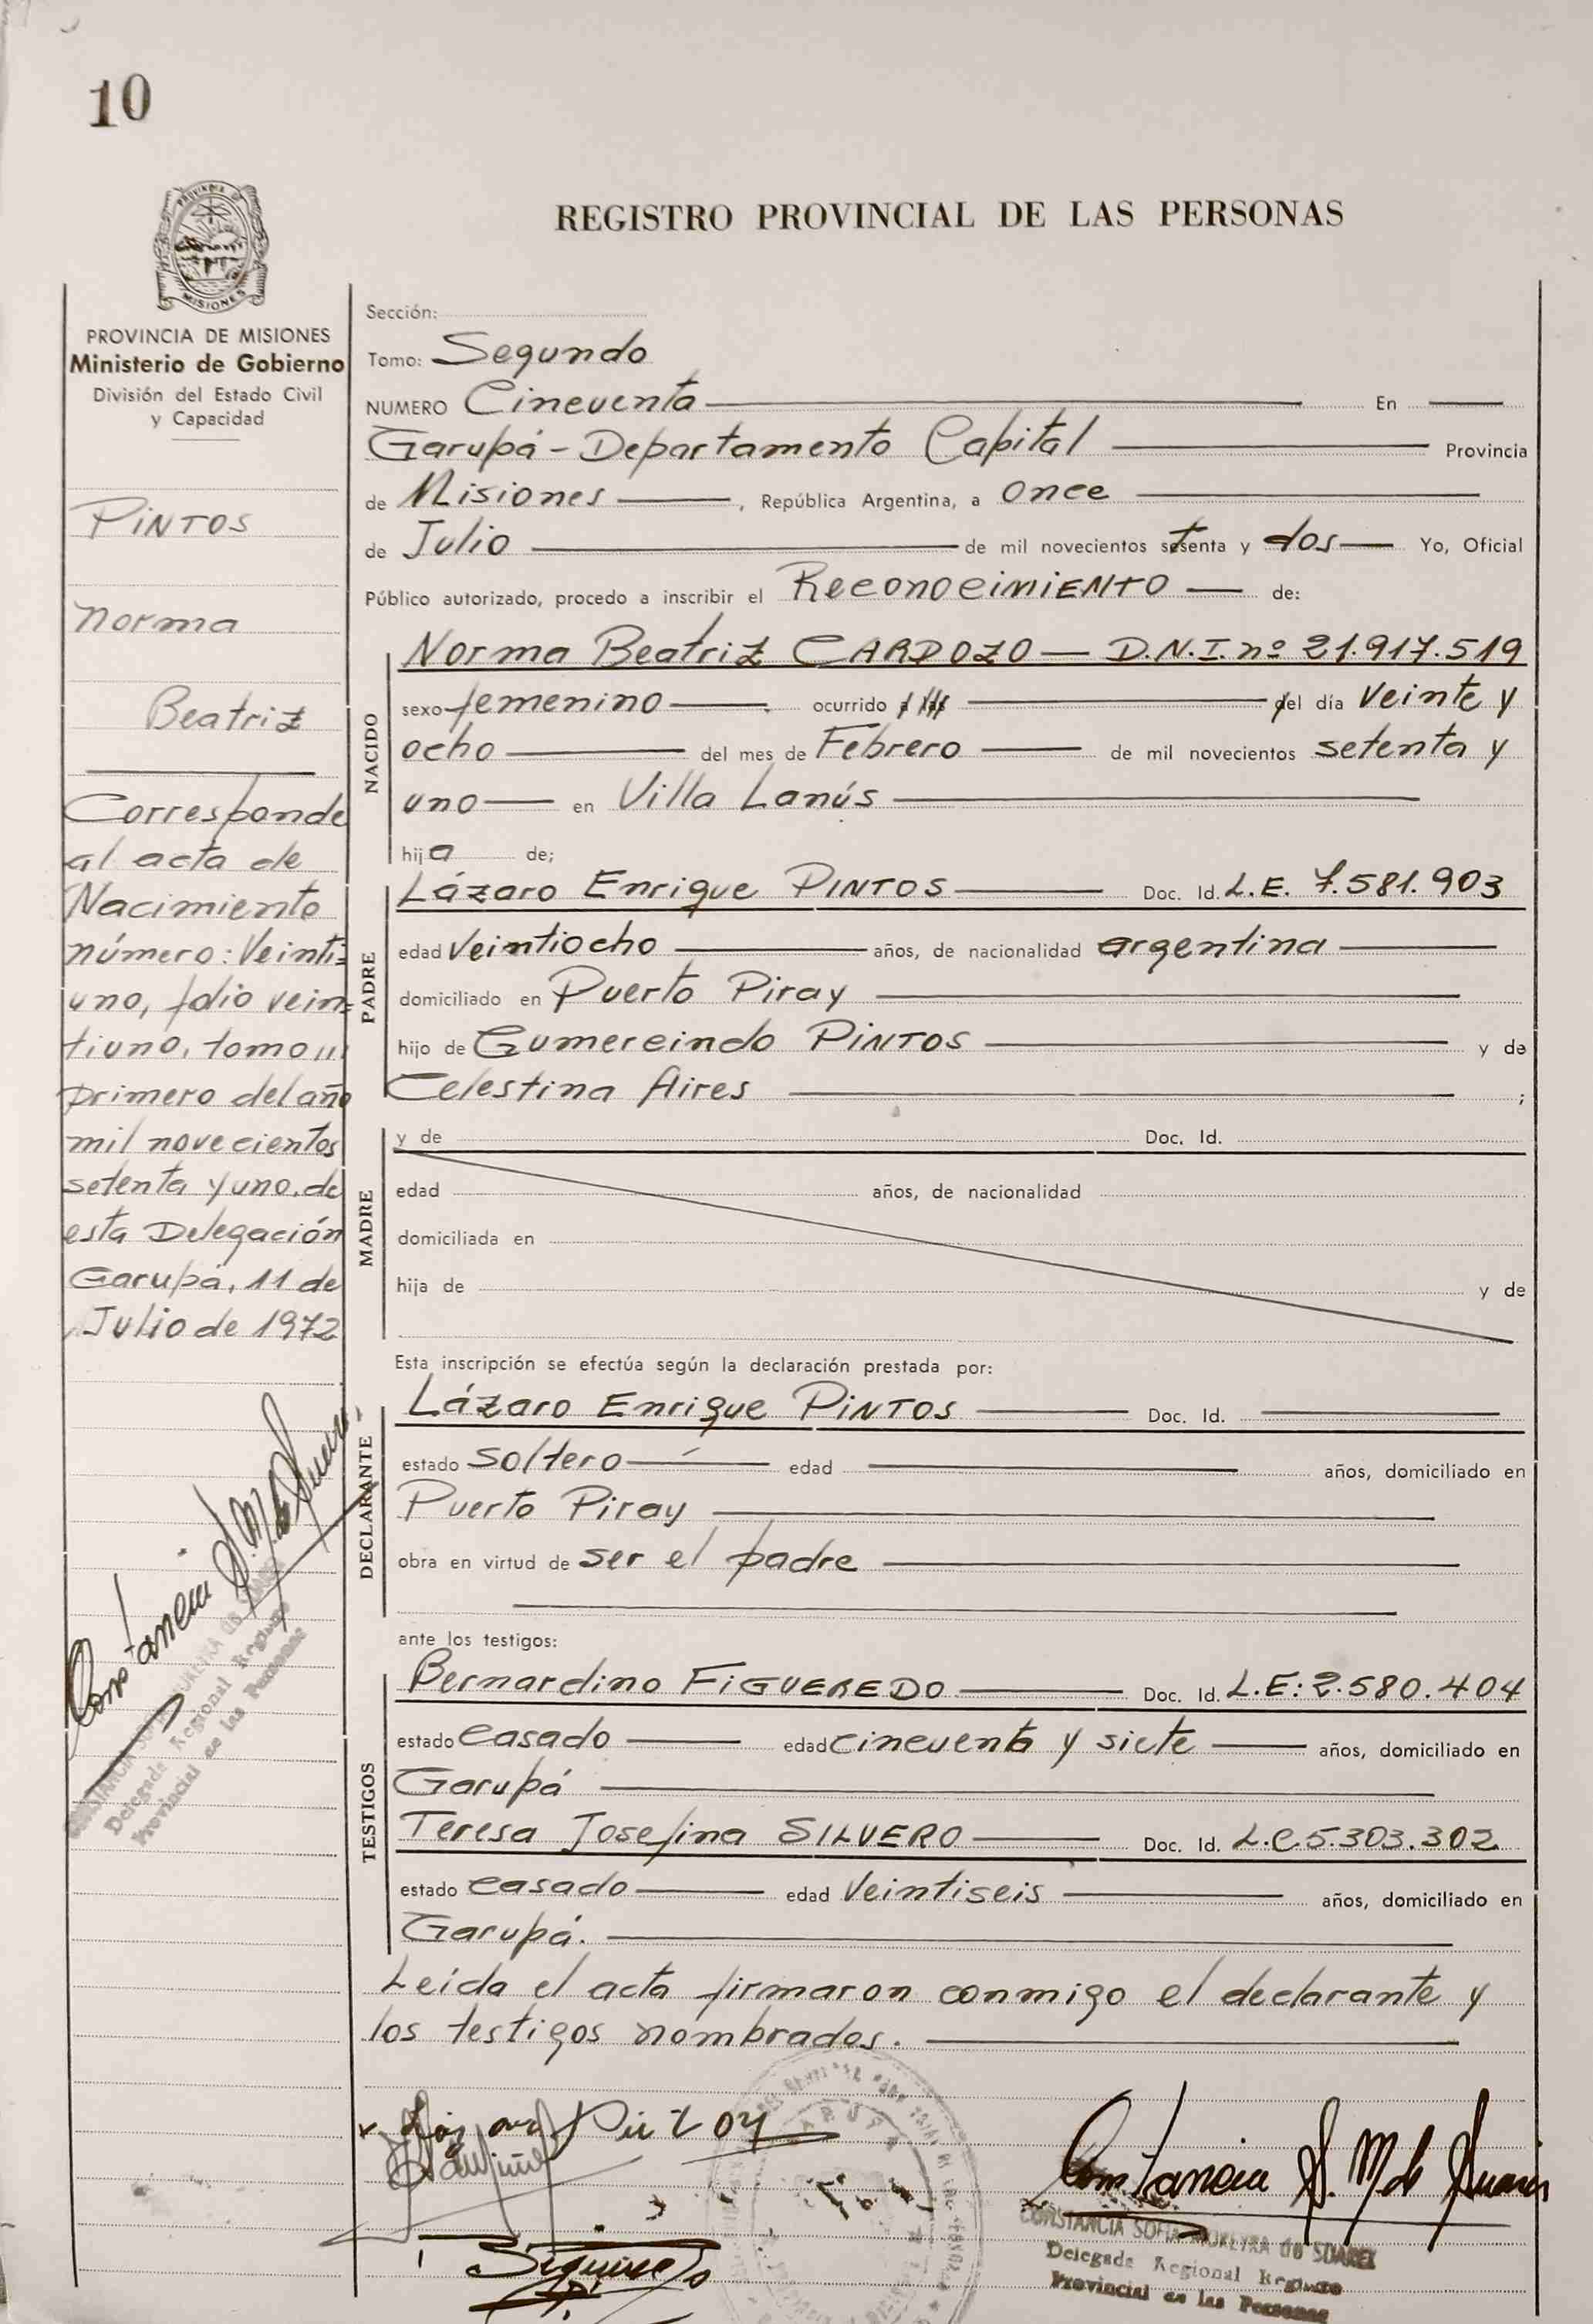 10
REGISTRO PROVINCIAL DE LAS PERSONAS
PROVINCIA DE MISIONES
Ministerio de Gobierno
División del Estado Civil
y Capacidad
PINTOS
Norma
Beatriz
Corresponde
al acta de
Nacimiento
número: Veinti=
uno, folio vein=
tiuno, tomo
primero del año
mil novecientos
setenta y uno, de
esta Delegación
Garupá, 11 de
Julio de 1972
Delegada Regional Registro
Provincial de las Personas
Sección:
Tomo: Segundo
NUMERO Cincuenta En
Garupá - Departamento Capital Provincia
de Misiones , República Argentina, a once
de Julio de mil novecientos setenta y dos Yo, Oficial
Público autorizado, procedo a inscribir el Reconocimiento de:
NACIDO
Norma Beatriz CARDOZO — D.N.I. nº 21.917.519
sexo femenino ocurrido del día veinte y
ocho del mes de Febrero de mil novecientos setenta y
uno en Villa Lanús
hija de;
PADRE
Lázaro Enrique PINTOS Doc. Id. L.E. 7.581.903
edad veintiocho años, de nacionalidad argentina
domiciliado en Puerto Piray
hijo de Gumercindo PINTOS y de
Celestina Aires ;
MADRE
y de Doc. Id.
edad años, de nacionalidad
domiciliada en
hija de y de
Esta inscripción se efectúa según la declaración prestada por:
DECLARANTE
Lázaro Enrique PINTOS Doc. Id.
estado soltero edad años, domiciliado en
Puerto Piray
obra en virtud de ser el padre
ante los testigos:
TESTIGOS
Bernardino FIGUEREDO Doc. Id. L.E: 2.580.404
estado casado edad cincuenta y siete años, domiciliado en
Garupá
Teresa Josefina SILVERO Doc. Id. L.C. 5.303.302
estado casado edad Veintiseis años, domiciliado en
Garupá.
Leida el acta firmaron conmigo el declarante y
los testigos nombrados.
Constancia S. M. de Suarez
CONSTANCIA SOFIA MOREYRA de SUAREZ
Delegada Regional Registro
Provincial de las Personas